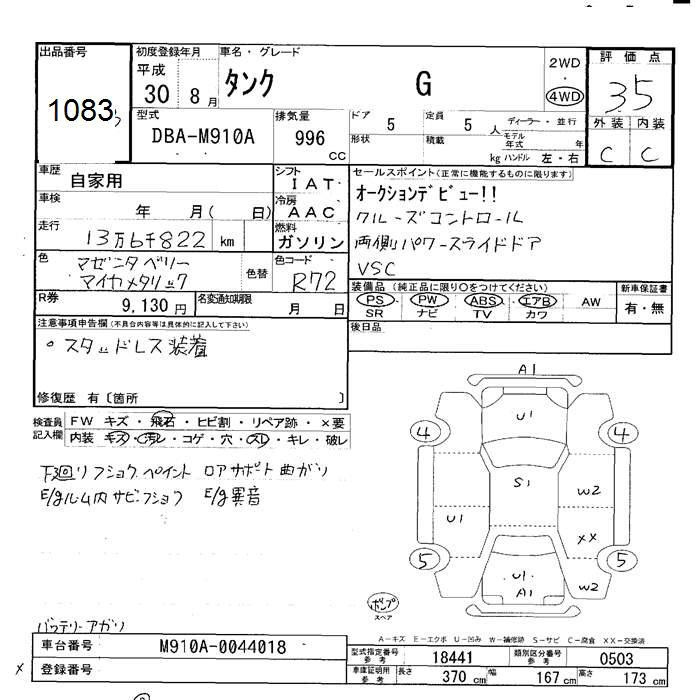 出品番号
1083
初度登録年月
平成
30 8 月
車名・グレード
タンク G
2WD
・
4WD
評価点
3.5
外装 内装
C C
型式
DBA-M910A
排気量
996
CC
ドア 5
定員 5 人
形状
積載 kg
ディーラー・並行
モデル年式 年
ハンドル 左・右
車歴
自家用
シフト
IAT
セールスポイント(正常に機能するものに限ります)
オークションデビュー!!
クルーズコントロール
両側パワースライドドア
VSC
車検
年 月( 日)
冷房
AAC
走行
13万6千822 km
燃料
ガソリン
色
マゼンタベリー
マイカメタリック
色替
色コード
R72
R券
9,130 円
名変通知期限
月 日
装備品 (純正品に限り○をつけてください)
PS PW ABS エアB AW
SR ナビ TV カワ
新車保証書
有・無
後日品
注意事項申告欄(不具合内容等は具体的に記入して下さい)
○スタッドレス装着
修復歴 有〔箇所 〕
検査員
記入欄
FW キズ・飛石・ヒビ割・リペア跡・×要
内装 キズ・汚レ・コゲ・穴・スレ・キレ・破レ
下廻りフショクペイント ロアサポート曲がり
E/gルーム内サビフショク E/g異音
A1
U1
4 4
S1
W2
U1
XX
5 5
U1
A1
W2
ポンプ
スペア
バッテリーアガリ
A-キズ E-エクボ U-凹み W-補修跡 S-サビ C-腐食 XX-交換済
車台番号
M910A-0044018
型式指定番号
参考
18441
類別区分番号
参考
0503
×
登録番号
車庫証明用
参考
長さ 370 cm
幅 167 cm
高さ 173 cm